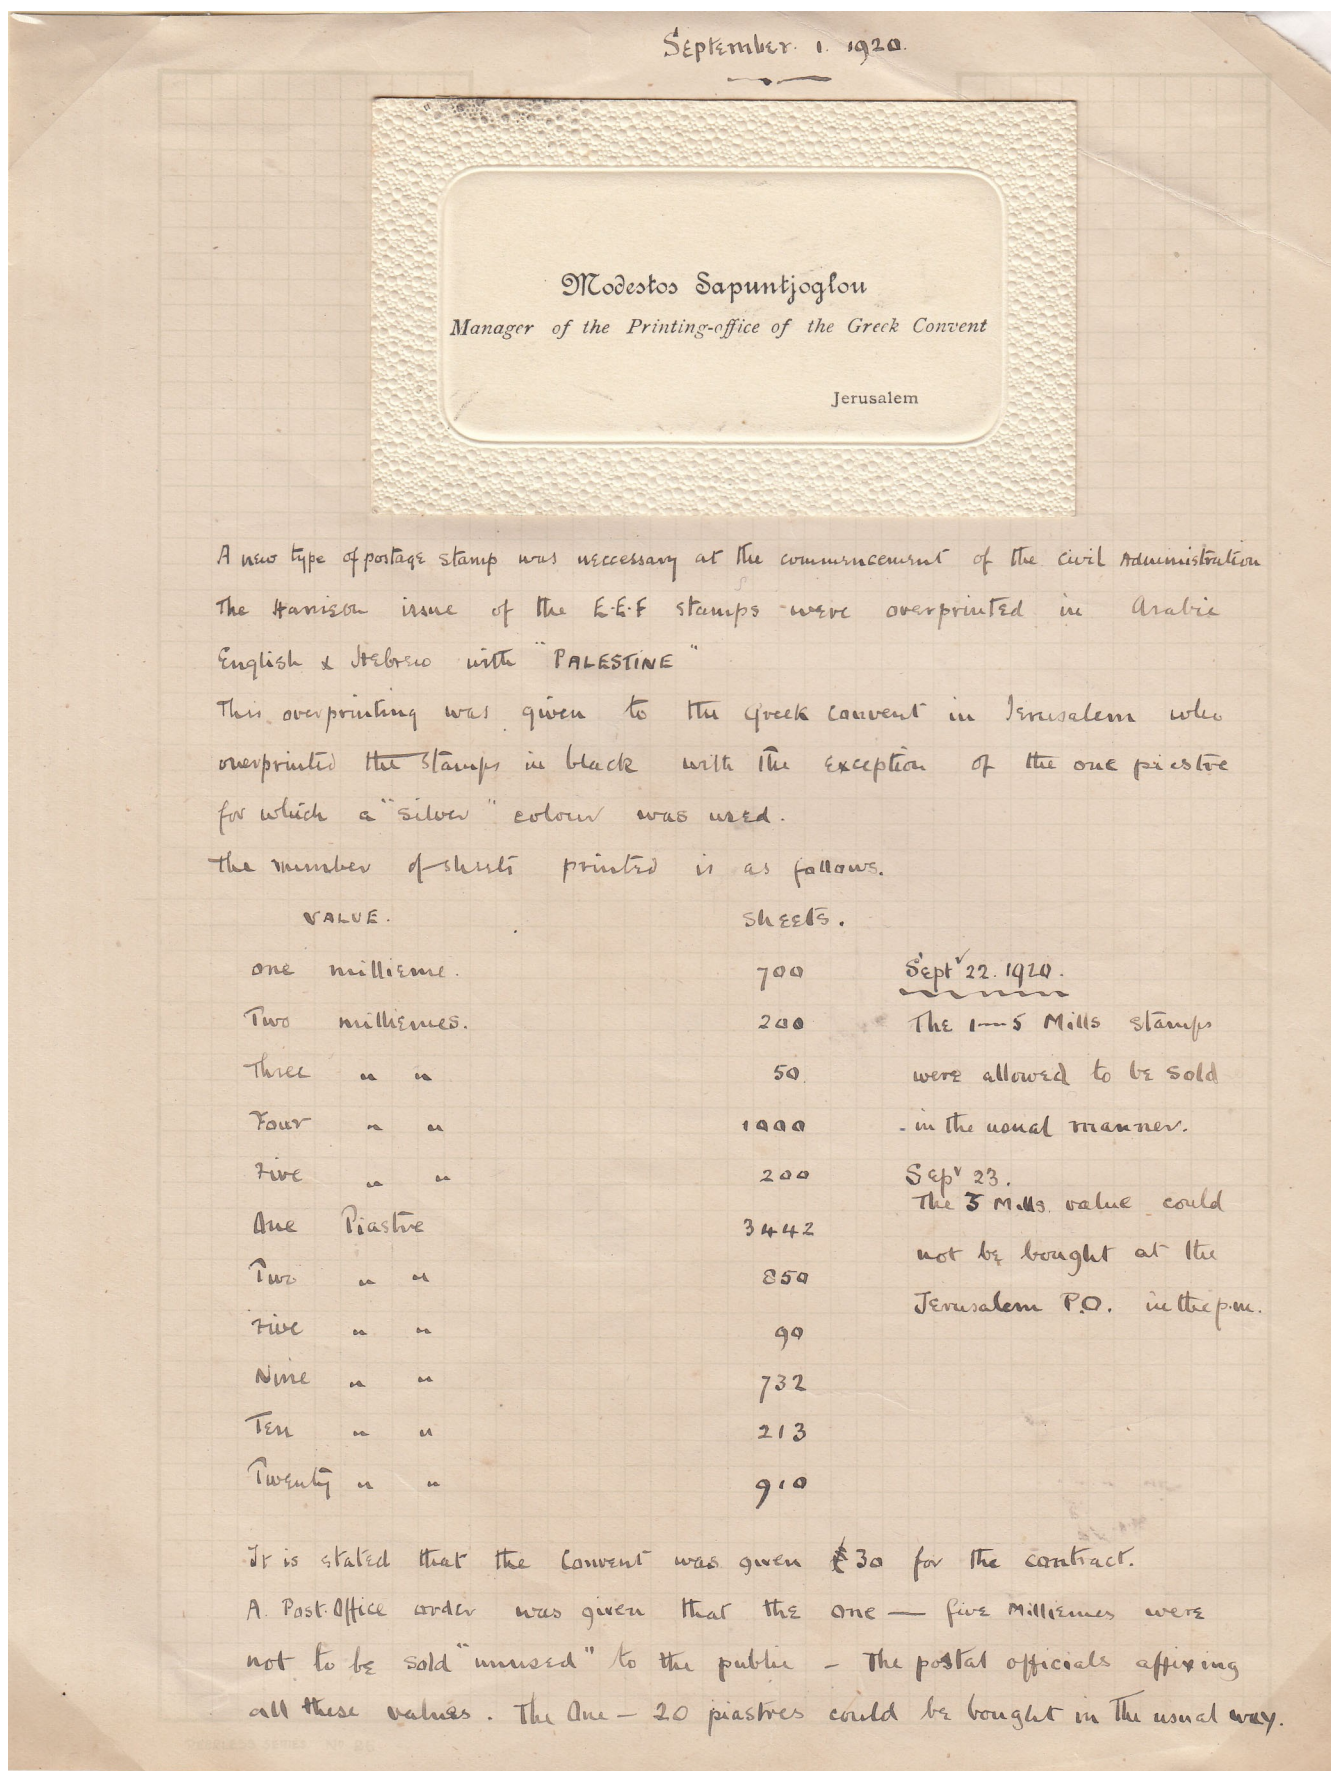 September. 1. 1920.
Modestos Sapuntjoglou
Manager of the Printing-office of the Greek Convent
Jerusalem
A new type of postage stamp was neccessary at the commencement of the civil Administration
The Harrison issue of the E.E.F stamps were overprinted in Arabic
English & Hebrew with "PALESTINE"
This overprinting was given to the Greek convent in Jerusalem who
overprinted the stamps in black with the exception of the one piastre
for which a "silver" colour was used.
The number of sheets printed is as follows.
VALUE. Sheets.
one millieme. 700
Two milliemes. 200
Three " " 50
Four " " 1000
Five " " 200
One Piastre 3442
Two " " 850
Five " " 90
Nine " " 732
Ten " " 213
Twenty " " 910
Septr 22. 1920.
The 1—5 Mills stamps
were allowed to be sold
in the usual manner.
Sepr 23.
The 3 Mills value could
not be bought at the
Jerusalem P.O. in the p.m.
It is stated that the Convent was given £30 for the contract.
A. Post-Office order was given that the one — five Milliemes were
not to be sold "unused" to the public - The postal officials affixing
all these values. The One — 20 piastres could be bought in the usual way.